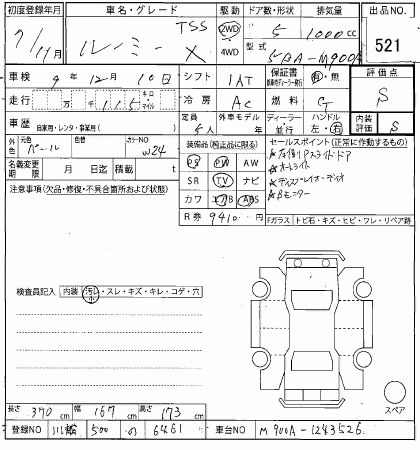 初度登録年月 車名・グレード 駆動 ドア数・形状 排気量 出品NO.
7/11月 ルーミー TSS X 2WD 4WD 5 1000cc 521
型式 5BA-M900A
車検 9年 12月 10日 シフト 1AT 保証書 有・無 評価点
走行 万 千 115 キロ マイル 冷房 AC 燃料 G S
車歴 自家用・レンタ・事業用( ) 定員 5人 外車モデル ディーラー・並行 ハンドル 左・右 内装評価 S
外色 元色 パール 色替 カラーNO W24
名義変更期限 月 日迄 積載 t
装備品(純正品に限る) セールスポイント(正常に作動するもの)
PS PW AW ★左側Pスライドドア
SR TV ナビ ★オートライト
カワ エアB ABS ★ディスプレイオーディオ
R券 9410円 ★Bモニター
注意事項(欠品・修復・不具合箇所および状態)
Fガラス トビ石・キズ・ヒビ・ワレ・リペア跡
検査員記入 内装 汚レ・スレ・キズ・キレ・コゲ・穴
小
長さ 370cm 幅 167cm 高さ 173cm
スペア
登録NO 川崎 500 の 6461 車台NO M900A-1243526